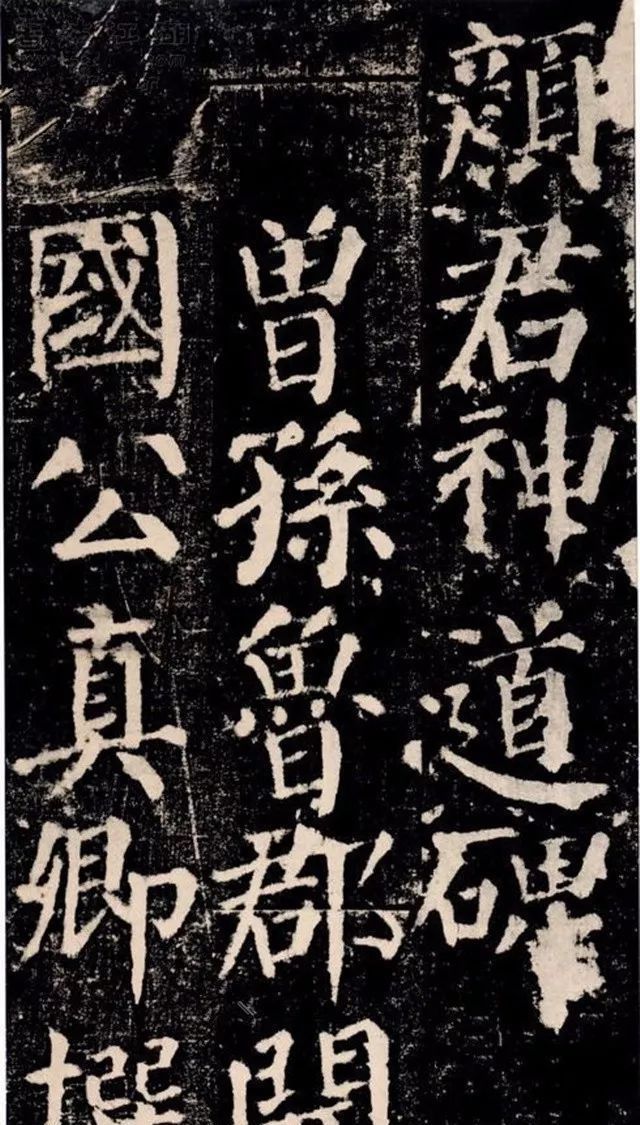 顔君神道碑
曾孫魯郡開
國公真卿撰